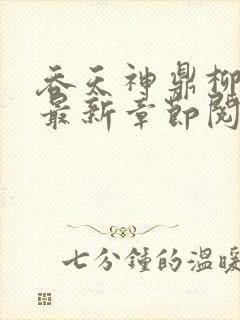 吞天神鼎柳
最新章节阅
七分钟的温暖